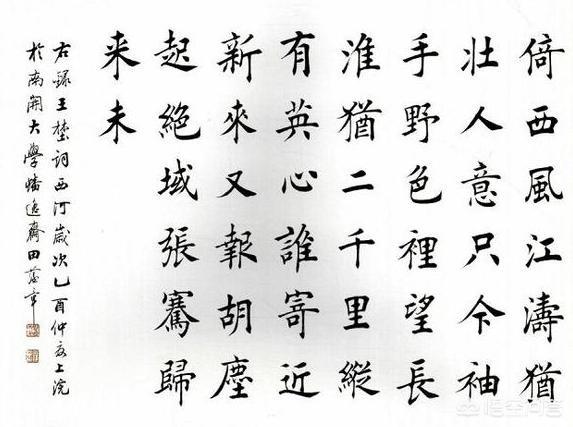 倚西風江濤猶
壯人意只今袖
手野色裡望長
淮猶二千里縱
有英心誰寄近
新來又報胡塵
起絕域張騫歸
来未
右錄王埜詞西河歲次乙酉仲夏上浣
於南開大學逸齋田蘊章
悟空问答